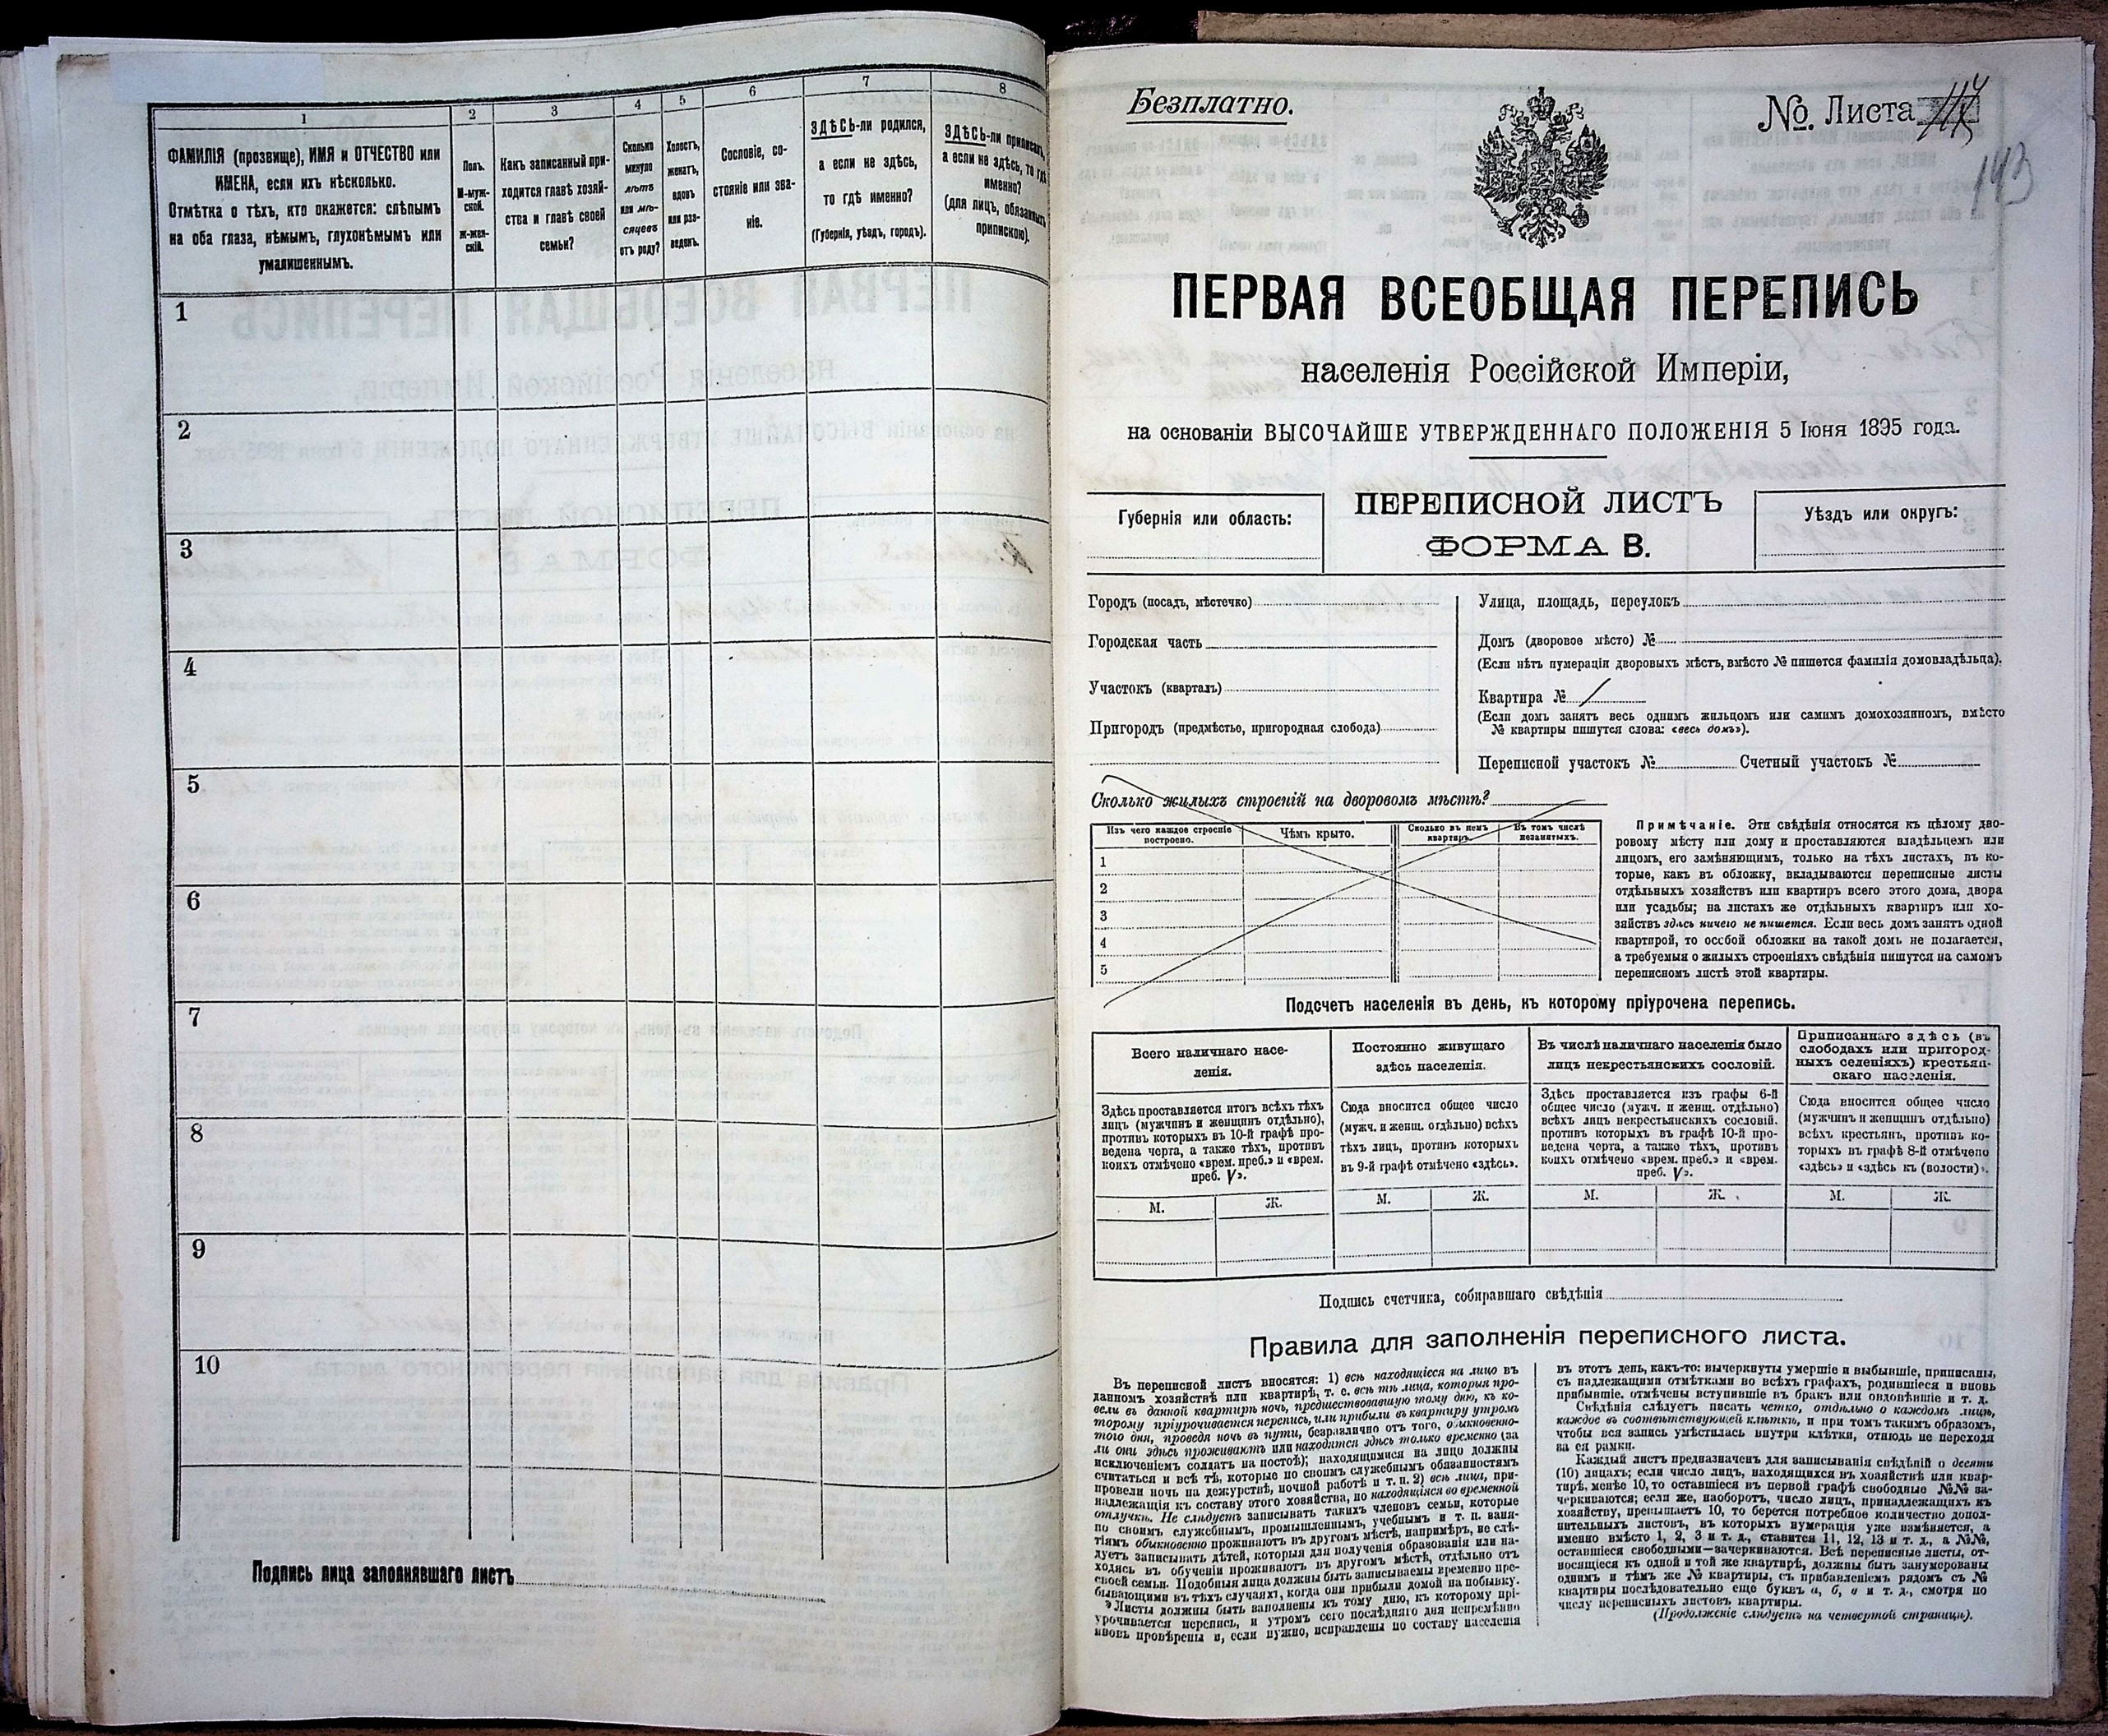 1
ФАМИЛІЯ (прозвище), ИМЯ и ОТЧЕСТВО или
ИМЕНА, если ихъ нѣсколько.
Отмѣтка о тѣхъ, кто окажется: слѣпымъ
на оба глаза, нѣмымъ, глухонѣмымъ или
умалишеннымъ.
2
Полъ.
М-муж-
ской.
ж-жен-
скій.
3
Какъ записанный при-
ходится главѣ хозяй-
ства и главѣ своей
семьи?
4
Сколько
минуло
лѣтъ
или мѣ-
сяцевъ
отъ роду?
5
Холостъ,
женатъ,
вдовъ
или раз-
веденъ.
6
Сословіе, со-
стояніе или зва-
ніе.
7
ЗДѢСЬ-ли родился,
а если не здѣсь,
то гдѣ именно?
(Губернія, уѣздъ, городъ).
8
ЗДѢСЬ-ли приписанъ,
а если не здѣсь, то гдѣ
именно?
(для лицъ, обязанныхъ
припискою).
1
2
3
4
5
6
7
8
9
10
Подпись лица заполнявшаго листъ
Безплатно.
№. Листа
143
ПЕРВАЯ ВСЕОБЩАЯ ПЕРЕПИСЬ
населенія Россійской Имперіи,
на основаніи ВЫСОЧАЙШЕ УТВЕРЖДЕННАГО ПОЛОЖЕНІЯ 5 Іюня 1895 года.
Губернія или область:
ПЕРЕПИСНОЙ ЛИСТЪ
ФОРМА В.
Уѣздъ или округъ:
Городъ (посадъ, мѣстечко)
Городская часть
Участокъ (кварталъ)
Пригородъ (предмѣстье, пригородная слобода)
Улица, площадь, переулокъ
Домъ (дворовое мѣсто) №
(Если нѣтъ нумераціи дворовыхъ мѣстъ, вмѣсто № пишется фамилія домовладѣльца).
Квартира №
(Если домъ занятъ весь однимъ жильцомъ или самимъ домохозяиномъ, вмѣсто
№ квартиры пишутся слова: «весь домъ»).
Переписной участокъ № Счетный участокъ №
Сколько жилыхъ строеній на дворовомъ мѣстѣ?
Изъ чего каждое строеніе
построено.
Чѣмъ крыто.
Сколько въ немъ
квартиръ.
Въ томъ числѣ
незанятыхъ.
1
2
3
4
5
Примѣчаніе. Эти свѣдѣнія относятся къ цѣлому дво-
ровому мѣсту или дому и проставляются владѣльцемъ или
лицомъ, его замѣняющимъ, только на тѣхъ листахъ, въ ко-
торые, какъ въ обложку, вкладываются переписные листы
отдѣльныхъ хозяйствъ или квартиръ всего этого дома, двора
или усадьбы; на листахъ же отдѣльныхъ квартиръ или хо-
зяйствъ здѣсь ничего не пишется. Если весь домъ занятъ одной
квартирой, то особой обложки на такой домъ не полагается,
а требуемыя о жилыхъ строеніяхъ свѣдѣнія пишутся на самомъ
переписномъ листѣ этой квартиры.
Подсчетъ населенія въ день, къ которому пріурочена перепись.
Всего наличнаго насе-
ленія.
Здѣсь проставляется итогъ всѣхъ тѣхъ
лицъ (мужчинъ и женщинъ отдѣльно),
противъ которыхъ въ 10-й графѣ про-
ведена черта, а также тѣхъ, противъ
коихъ отмѣчено «врем. преб.» и «врем.
преб. V».
М. Ж.
Постоянно живущаго
здѣсь населенія.
Сюда вносится общее число
(мужч. и женщ. отдѣльно) всѣхъ
тѣхъ лицъ, противъ которыхъ
въ 9-й графѣ отмѣчено «здѣсь».
М. Ж.
Въ числѣ наличнаго населенія было
лицъ некрестьянскихъ сословій.
Здѣсь проставляется изъ графы 6-й
общее число (мужч. и женщ. отдѣльно)
всѣхъ лицъ некрестьянскихъ сословій.
противъ которыхъ въ графѣ 10-й про-
ведена черта, а также тѣхъ, противъ
коихъ отмѣчено «врем. преб.» и «врем.
преб. V».
М. Ж.
Приписаннаго здѣсь (въ
слободахъ или пригород-
ныхъ селеніяхъ) крестьян-
скаго населенія.
Сюда вносится общее число
(мужчинъ и женщинъ отдѣльно)
всѣхъ крестьянъ, противъ ко-
торыхъ въ графѣ 8-й отмѣчено
«здѣсь» и «здѣсь къ (волости)».
М. Ж.
Подпись счетчика, собиравшаго свѣдѣнія
Правила для заполненія переписного листа.
Въ переписной листъ вносятся: 1) всѣ находящіеся на лицо въ
данномъ хозяйствѣ или квартирѣ, т. е. всѣ тѣ лица, которыя про-
вели въ данной квартирѣ ночь, предшествовавшую тому дню, къ ко-
торому пріурочивается перепись, или прибыли въ квартиру утромъ
того дня, проведя ночь въ пути, безразлично отъ того, обыкновенно-
ли они здѣсь проживаютъ или находятся здѣсь только временно (за
исключеніемъ солдатъ на постоѣ); находящимися на лицо должны
считаться и всѣ тѣ, которые по своимъ служебнымъ обязанностямъ
провели ночь на дежурствѣ, ночной работѣ и т. п. 2) всѣ лица, при-
надлежащія къ составу этого хозяйства, но находящіяся во временной
отлучкѣ. Не слѣдуетъ записывать такихъ членовъ семьи, которые
по своимъ служебнымъ, промышленнымъ, учебнымъ и т. п. заня-
тіямъ обыкновенно проживаютъ въ другомъ мѣстѣ, напримѣръ, не слѣ-
дуетъ записывать дѣтей, которыя для полученія образованія или на-
ходясь въ обученіи проживаютъ въ другомъ мѣстѣ, отдѣльно отъ
своей семьи. Подобныя лица должны быть записываемы временно пре-
бывающими въ тѣхъ случаяхъ, когда они прибыли домой на побывку.
Листы должны быть заполнены къ тому дню, къ которому прі-
урочивается перепись, и утромъ сего послѣдняго дня непремѣнно
вновь провѣрены и, если нужно, исправлены по составу населенія
въ этотъ день, какъ-то: вычеркнуты умершіе и выбывшіе, приписаны,
съ надлежащими отмѣтками во всѣхъ графахъ, родившіеся и вновь
прибывшіе, отмѣчены вступившіе въ бракъ или овдовѣвшіе и т. д.
Свѣдѣнія слѣдуетъ писать четко, отдѣльно о каждомъ лицѣ,
каждое въ соотвѣтствующей клѣткѣ, и при томъ такимъ образомъ,
чтобы вся запись умѣстилась внутри клѣтки, отнюдь не переходя
за ея рамки.
Каждый листъ предназначенъ для записыванія свѣдѣній о десяти
(10) лицахъ; если число лицъ, находящихся въ хозяйствѣ или квар-
тирѣ, менѣе 10, то оставшіеся въ первой графѣ свободные №№ за-
черкиваются; если же, наоборотъ, число лицъ, принадлежащихъ къ
хозяйству, превышаетъ 10, то берется потребное количество допол-
нительныхъ листовъ, въ которыхъ нумерація уже измѣняется, а
именно вмѣсто 1, 2, 3 и т. д., ставится 11, 12, 13 и т. д., а №№,
оставшіеся свободными—зачеркиваются. Всѣ переписные листы, от-
носящіеся къ одной и той же квартирѣ, должны быть занумерованы
однимъ и тѣмъ же № квартиры, съ прибавленіемъ рядомъ съ №
квартиры послѣдовательно еще буквъ а, б, в и т. д., смотря по
числу переписныхъ листовъ квартиры.
(Продолженіе слѣдуетъ на четвертой страницѣ).